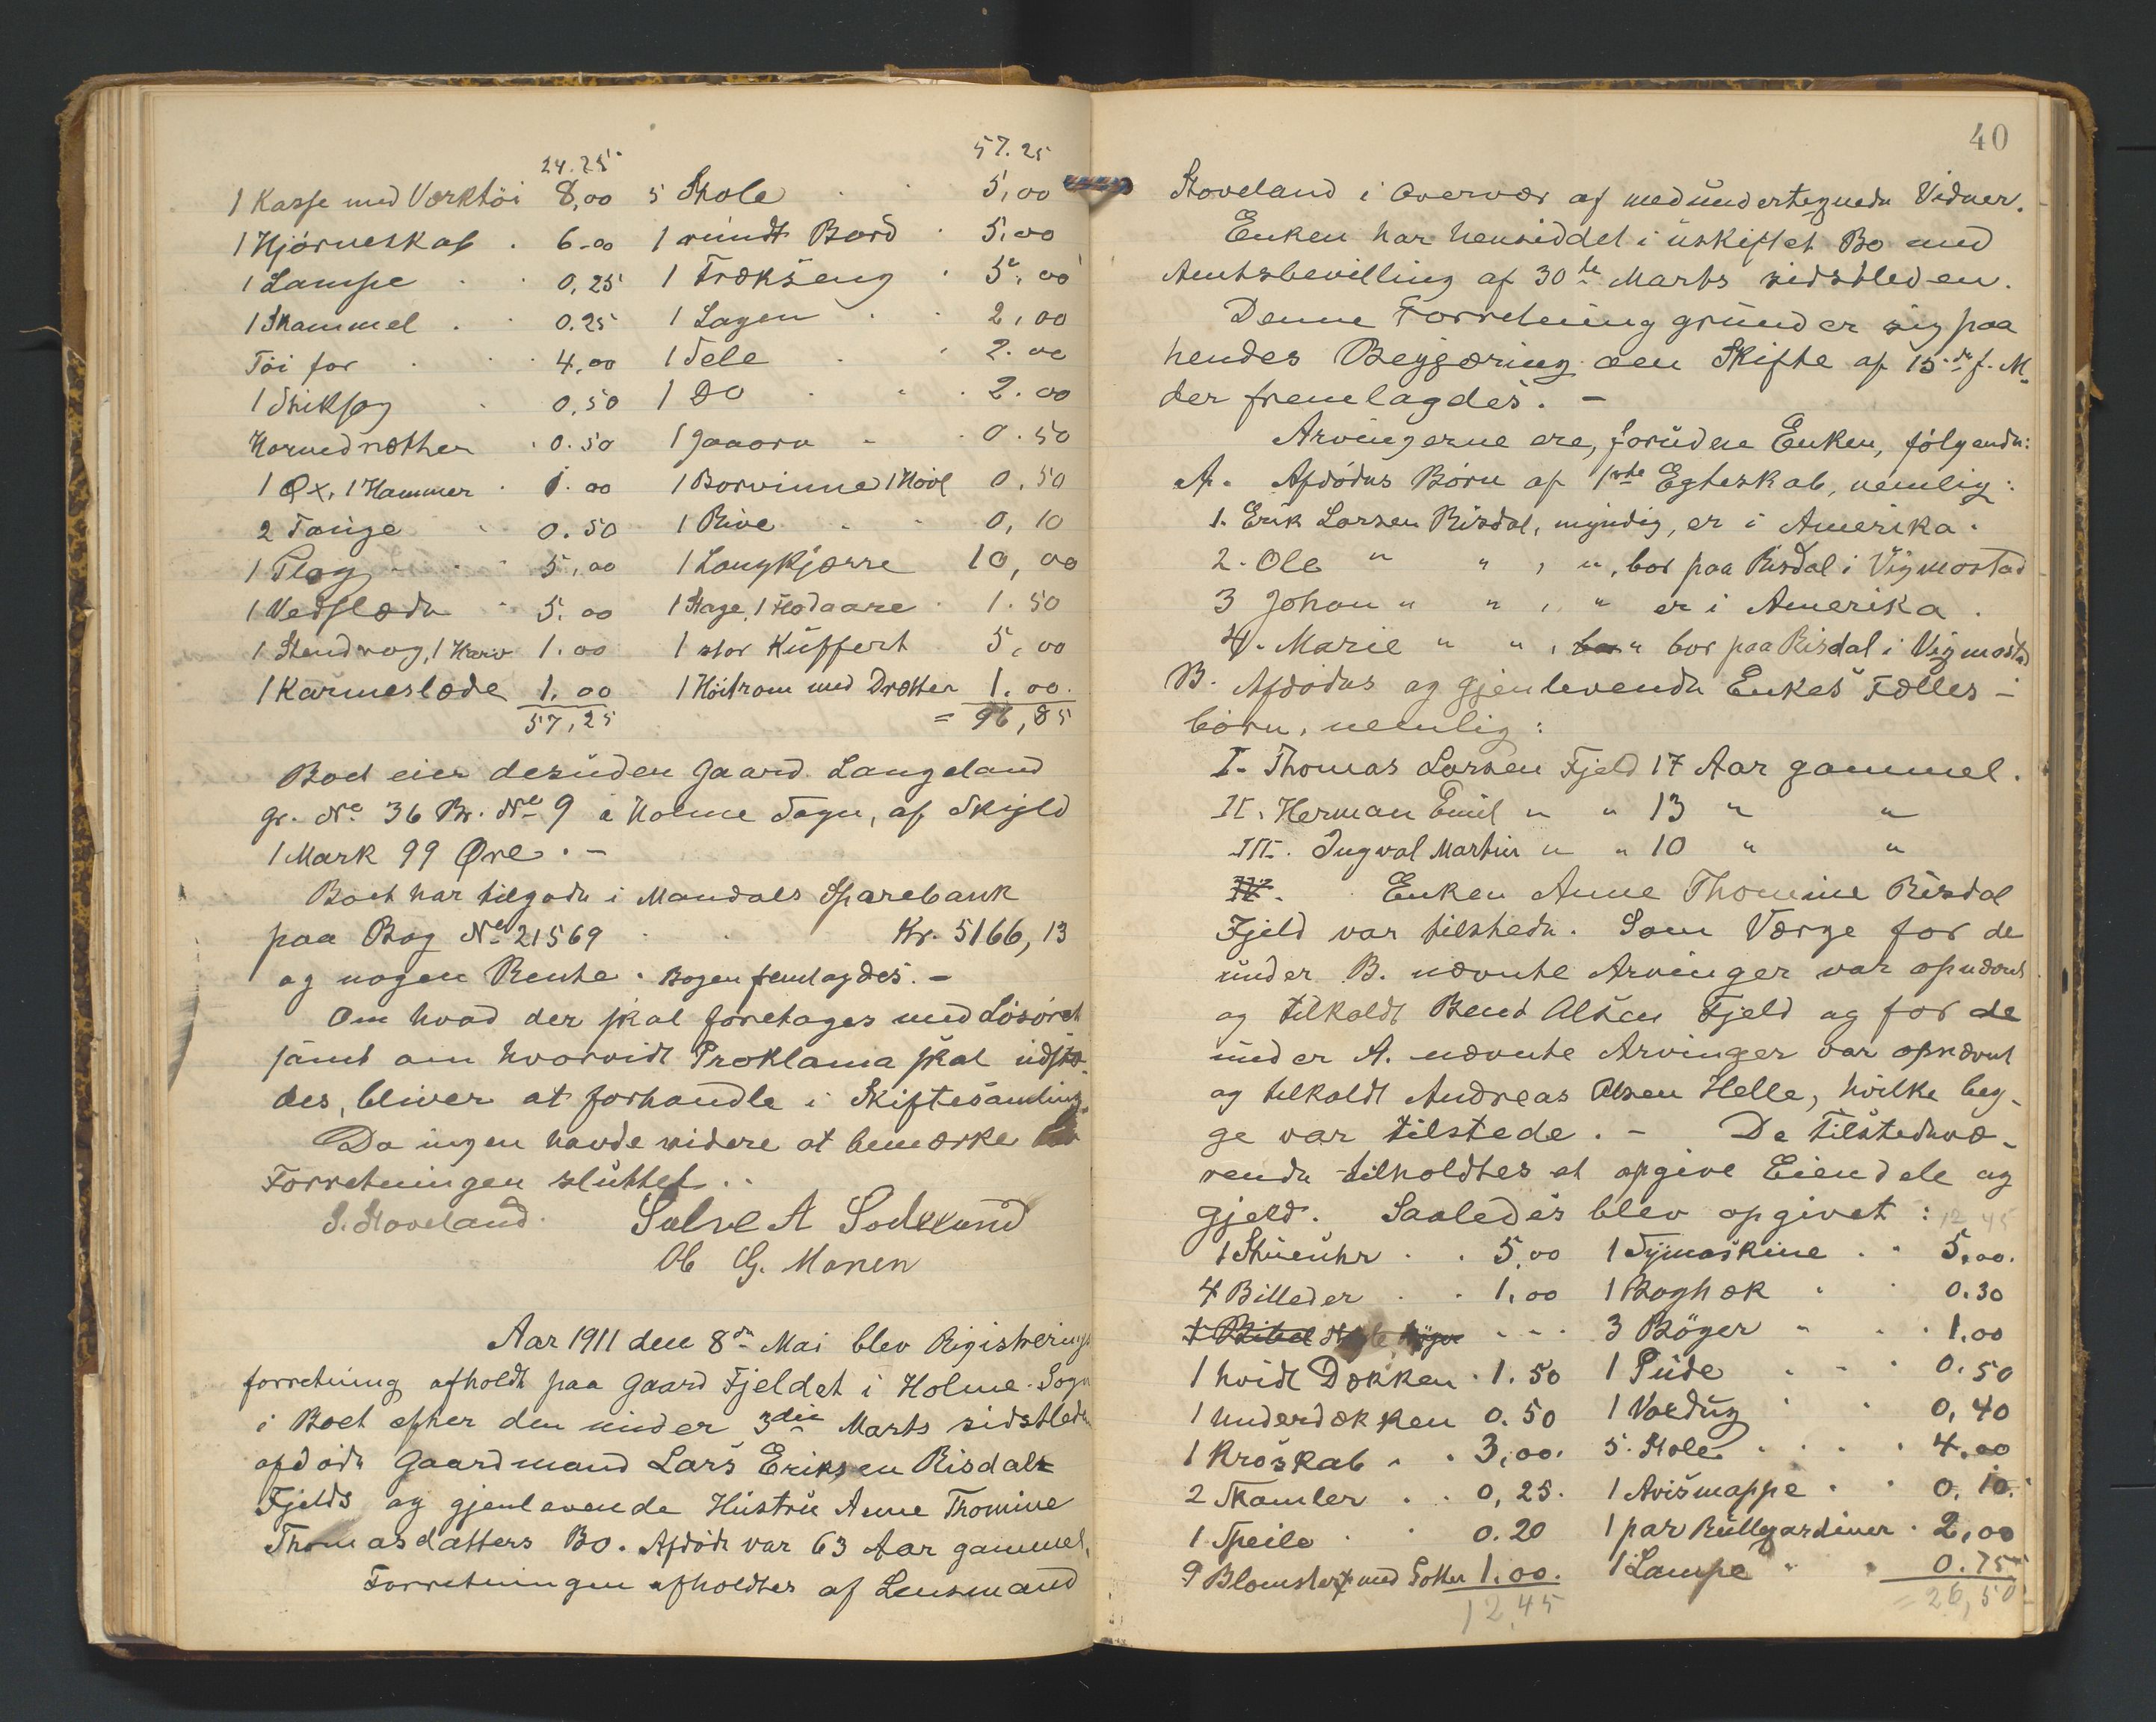 24.25
1 Kasse med Værktöi 8,00
1 Hjörneskab . 6.00
1 Lampe . . 0,25
1 Skammel . . 0.25
Töi for . . . 4,00
1 Stiksag . 0,50
. 0.50
1 Øx, 1 Hammer . 1.00
2 Tønge . 0.50
1 Plog . . . 5,00
1 Vedslæde . 5.00
1 Stendrog, 1 Harv 1.00
1 Karmeslæde 1,00
57,25
57.25
5 Stole . . 5,00
1 rundt Bord . 5,00
1 Trækseng . 5,00
1 Lagen . . 2,00
1 Sele . . 2.00
1 Do . . . 2.00
. 0.50
1 Borvinne 1 Hövl 0,50
1 Rive . . 0,10
1 Langkjærre 10,00
1 Stage, 1 Flodaare . 1.50
1 stor Kuffert 5,00
1 med Drætter 1.00.
= 96,85
Boet eier desuden Gaard. Langeland
gr. No 36 Br. No 9 i Holme Sogn, af Skyld
1 Mark 99 Øre . -
Boet har tilgode i Mandals Sparebank
paa Bog No 21569 . . Kr. 5166,13
og nogen Rente . Bogen fremlagdes. -
Om hvad der skal foretages med Lösöret
samt om hvorvidt Proklama skal udstæ-
des, bliver at forhandle i Skiftesamling.
Da ingen havde videre at bemærke blev
Forretningen sluttet . .
S. Stoveland. Salve A
Ole G. Monen
Aar 1911 den 8de Mai blev Rigistrerings
forretning afholdt paa Gaard Fjeldet i Holme Sogn
i Boet efter den under 3die Marts sidstleden
afdöde Gaardmand Lars Eriksen Risdals
Fjelds og gjenlevende Hustru Anne Thomine
Thomasdatters Bo. Afdöde var 63 Aar gammel.
Forretningen afholdtes af Lensmand
40
Stoveland i Overvær af medundertegnede Vidner.
Enken har hensiddet i uskiftet Bo med
Amtsbevilling af 30te Marts sidstleden.
Denne Forretning grunder sig paa
hendes Begjæring om Skifte af 15de f. M.
der fremlagdes. -
Arvingerne ere, foruden Enken, fölgende:
A. Afdödes Börn af 1ste Egteskab, nemlig:
1. Erik Larsen Risdal, myndig, er i Amerika.
2. Ole " " , ", bor paa Risdal i Vigmostad
3 Johan " " , " er i Amerika .
4. Marie " " , bor " bor paa Risdal i Vigmostad
B. Afdödes og gjenlevende Enkes Fælles-
börn, nemlig:
I. Thomas Larsen Fjeld 17 Aar gammel.
II. Herman Emil " " 13 " "
III. Ingval Martin " " 10 " "
IV. Enken Anne Thomine Risdal
Fjeld var tilstede. Som Værge for de
under B. nævnte Arvinger var opnævnt
og tilkaldt Bent Olsen Fjeld og for de
under A. nævnte Arvinger var opnævnt
og tilkaldt Andreas Olsen Helle, hvilke beg-
ge var tilstede. - De Tilstedevæ-
rende tilholdtes at opgive Eiendele og
Gjeld. Saaledes blev opgivet : 12,45
1 Stueuhr . . 5,00
4 Billeder . . 1,00
1 Bibel . . .
1 hvidt Dækken . 1.50
1 Underdækken 0.50
1 Kroskab . . 3,00.
2 Skamler . . 0,25.
1 Speile . . 0.20
9 Blomster med Potter 1.00.
12,45
1 Symaskine . . 5,00.
1 Boghæk . . 0.30
3 Böger . . . 1.00
1 Pude . . . 0.50
1 Voxdug . . 0,40
5. Stole . . . . 4.00
1 Avismappe . . 0,10.
1 par Rullgardiner . 2,00
1 Lampe . . 0.75
= 26,50